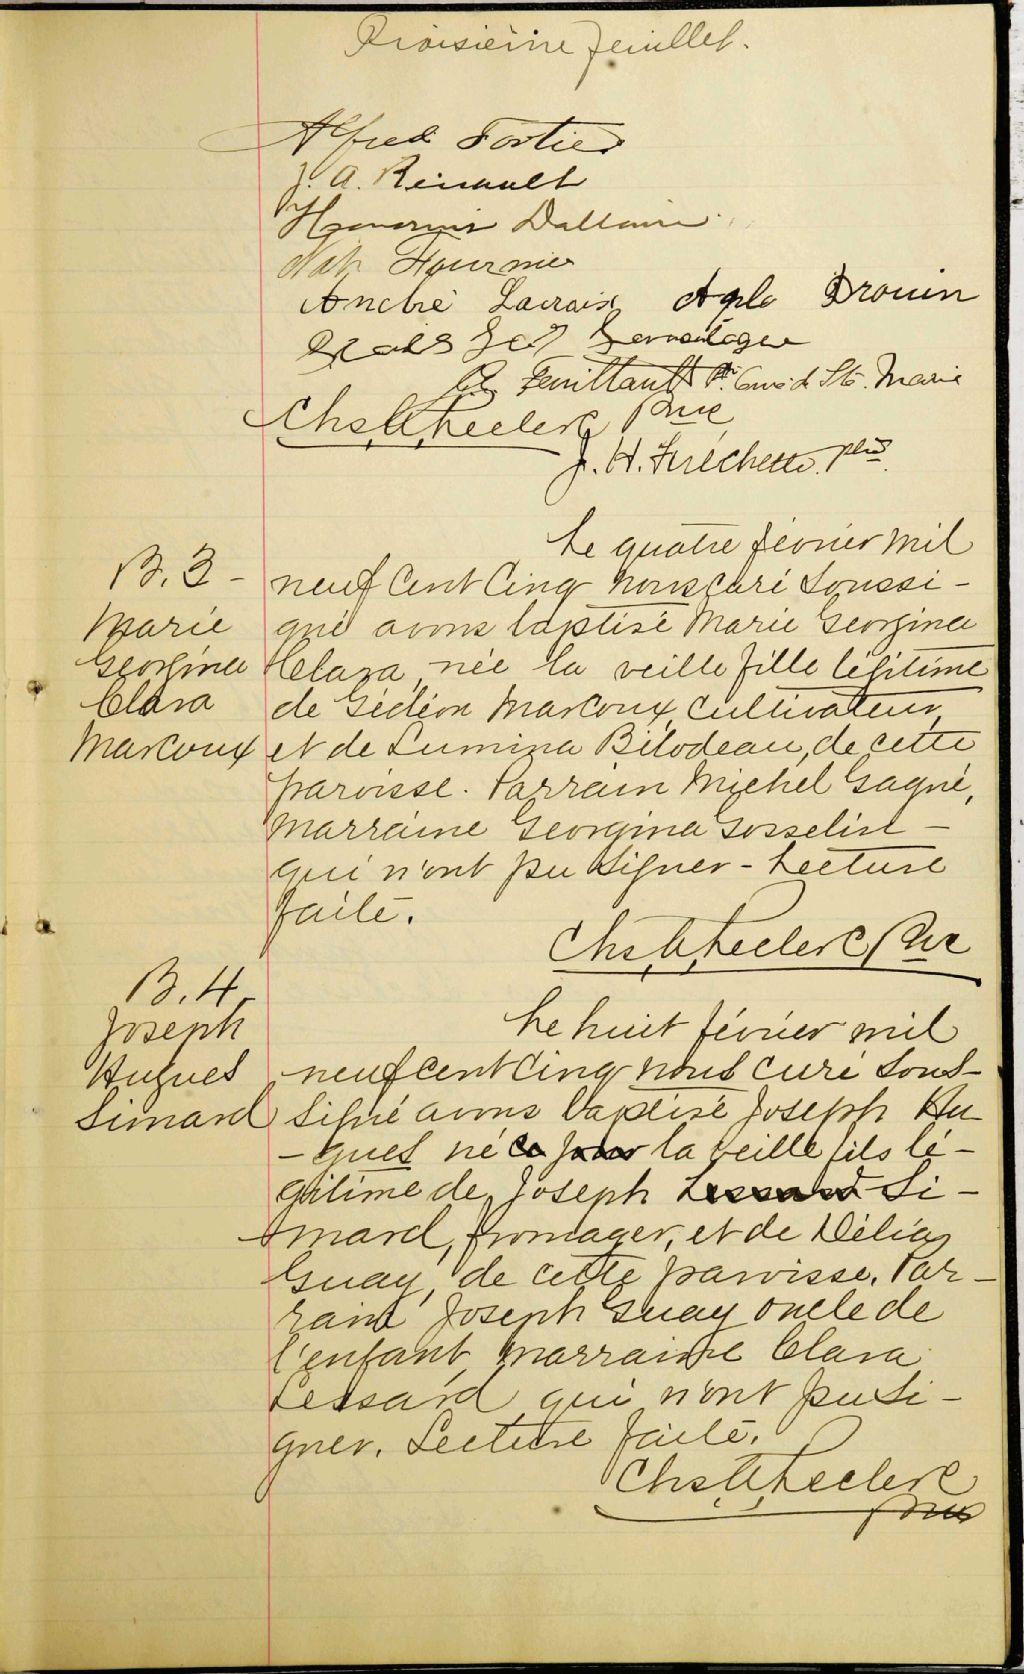 Troisième feuillet.
Alfred Fortier
J. A. Renault
Honorius Dallaire
Nap Fournier
André Lacroix Aple Drouin
Ch. Feuiltault Ptre Curé de Ste. Marie
Chs. A. Leclerc Ptre
J. H. Fréchette. ptre.
B. 3 -
Marie
Georgina
Clara
Marcoux
Le quatre février mil
neuf cent cinq nous curé soussi-
gné avons baptisé Marie Georgina
Clara, née la veille fille légitime
de Gédéon Marcoux, cultivateur,
et de Lumina Bilodeau, de cette
paroisse. Parrain Michel Gagné,
marraine Georgina Gosselin -
qui n'ont pu signer - Lecture
faite.
Chs. A. Leclerc Ptre
B. 4
Joseph
Hugues
Simard
Le huit février mil
neuf cent cinq nous curé sous-
signé avons baptisé Joseph Hu-
-gues né ce jour la veille fils lé-
gitime de Joseph Lessard Si-
mard, fromager, et de Délia
Guay, de cette paroisse. Par-
rain Joseph Guay oncle de
l'enfant, marraine Clara
Lessard qui n'ont pu si-
gner. Lecture faite.
Chs. A. Leclerc
Ptre